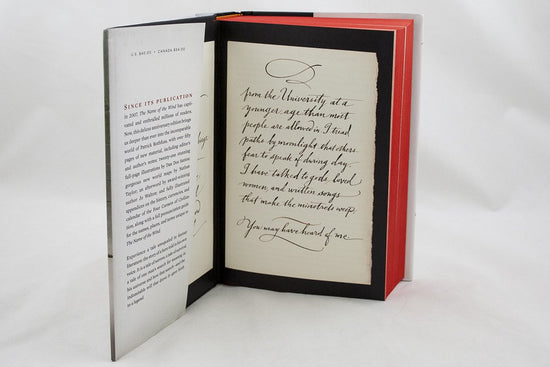 U.S. $40.00 • CANADA $54.00
SINCE ITS PUBLICATION
in 2007, The Name of the Wind has capti-
vated and enthralled millions of readers.
Now, this deluxe anniversary edition brings
us deeper than ever into the incomparable
world of Patrick Rothfuss, with over fifty
pages of new material, including editor's
and author's notes; twenty-one stunning
full-page illustrations by Dan Dos Santos;
gorgeous new world maps by Nathan
Taylor; an afterword by award-winning
author Jo Walton; and fully illustrated
appendices on the history, currencies, and
calendar of the Four Corners of Civiliza-
tion, along with a full pronunciation guide
for the names, places, and terms unique to
The Name of the Wind.
Experience a tale unequaled in fantasy
literature: the story of a hero told in his own
voice. It is a tale of sorrow, a tale of survival,
a tale of one man's search for meaning in
his universe and how that search, and the
indomitable will that drove it, gave birth
to a legend.
from the University at a
younger age than most
people are allowed in. I tread
paths by moonlight that others
fear to speak of during day.
I have talked to gods, loved
women, and written songs
that make the minstrels weep.
You may have heard of me